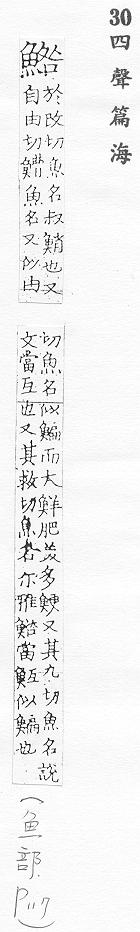 30四聲篇海
鯦於改切魚名叔鮪也又
自由切鰌魚名又似由
切魚名似鯿而大鮮肥美多鯁又其九切魚名說
文當互也又其救切魚名尔雅鯦當魱似鯿也
(鱼部.P117)